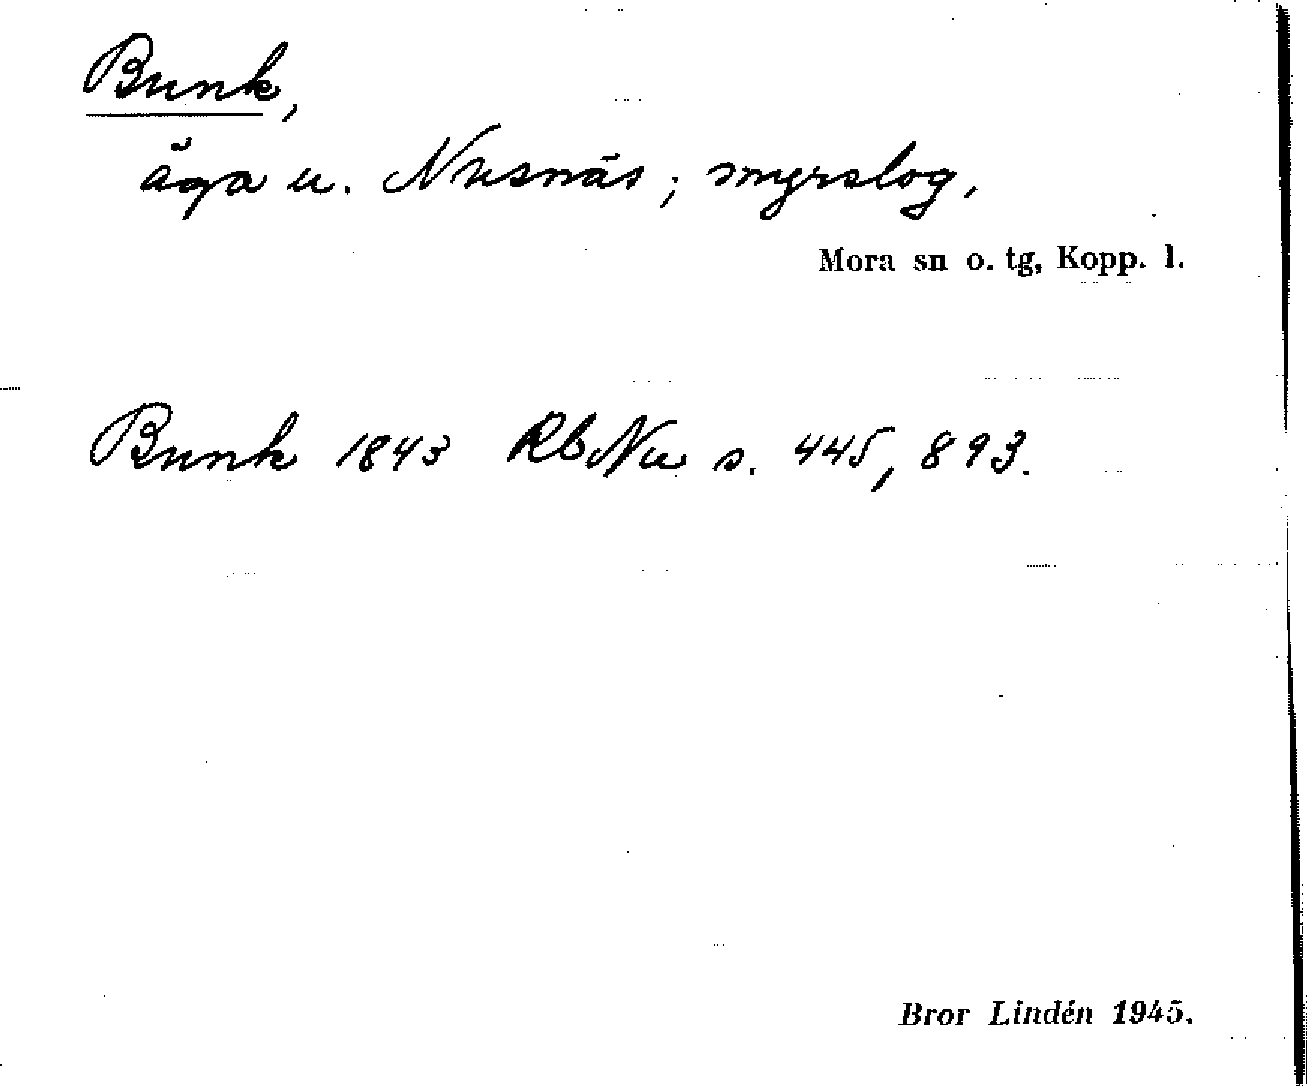 Bunk,
äga u. Nusnäs; smyrslog.
Mora sn o. tg, Kopp. l.
Bunk 1843 RbNu s. 445, 893.
Bror Lindén 1945.